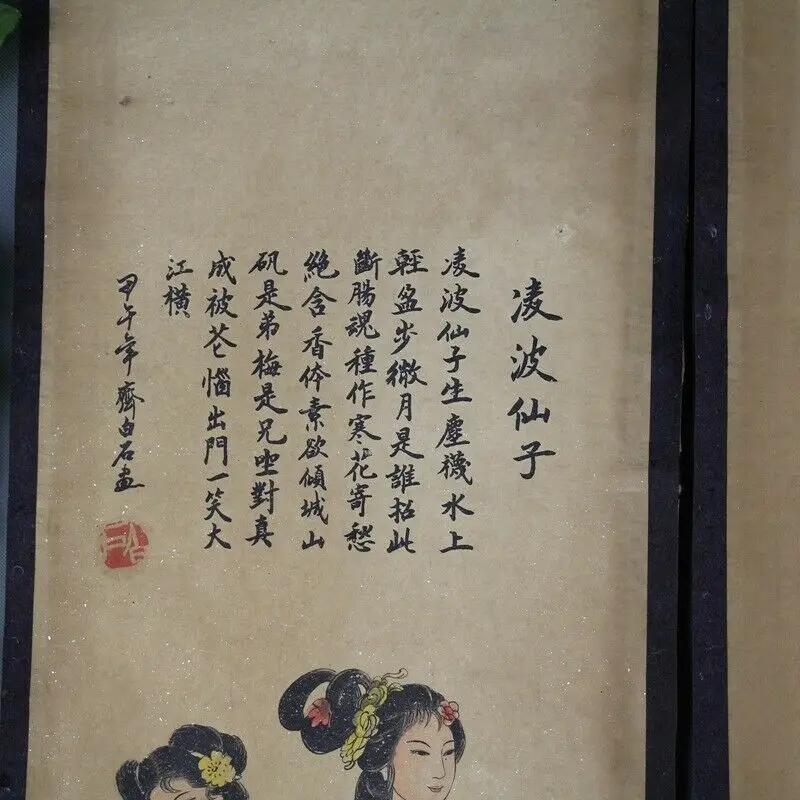 凌波仙子
凌波仙子生塵襪水上
輕盈步微月是誰招此
斷腸魂種作寒花寄愁
絶含香体素欲傾城山
矾是弟梅是兄坐對真
成被花惱出門一笑大
江橫
甲午年齊白石画